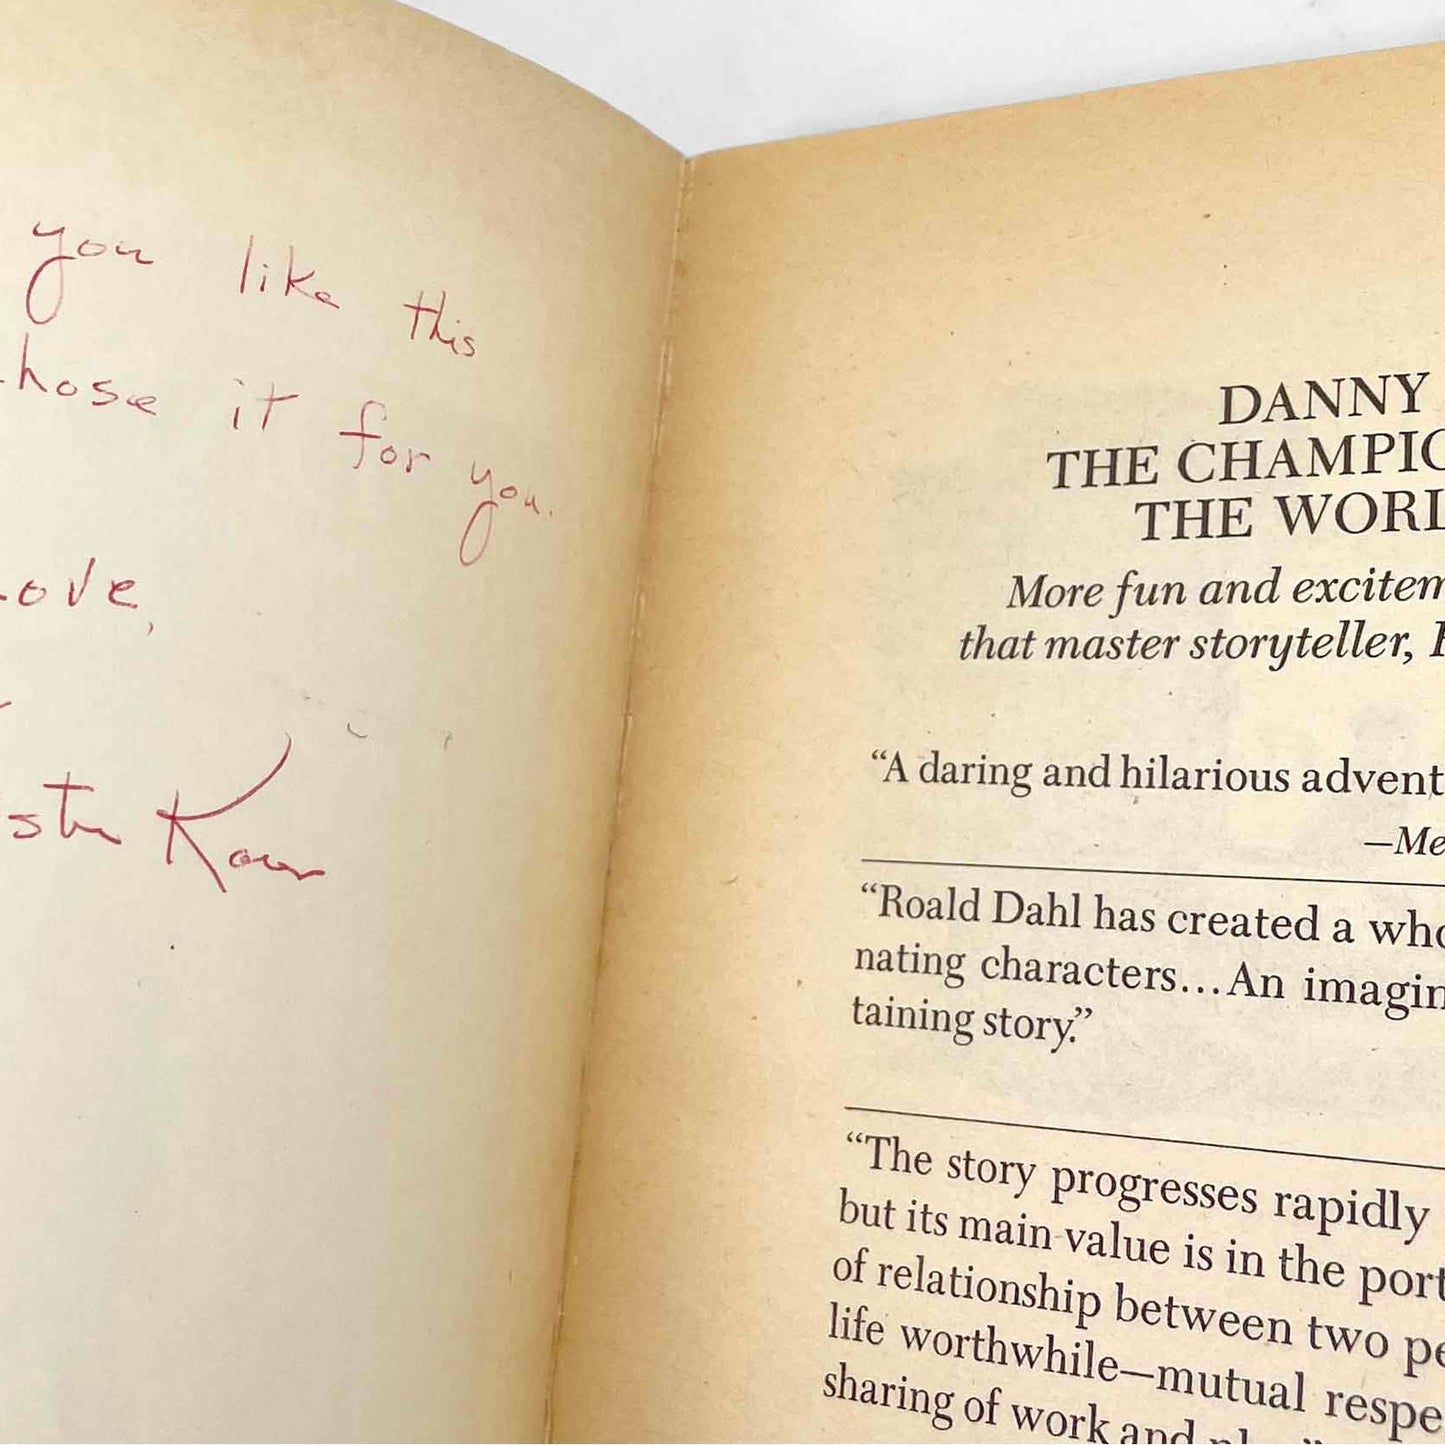 you like this
chose it for you.
Love,
DANNY
THE CHAMPIO
THE WORL
More fun and excitem
that master storyteller,
“A daring and hilarious advent
—Me
“Roald Dahl has created a who
nating characters...An imagin
taining story.”
“The story progresses rapidly
but its main value is in the port
of relationship between two pe
life worthwhile—mutual respe
sharing of work and